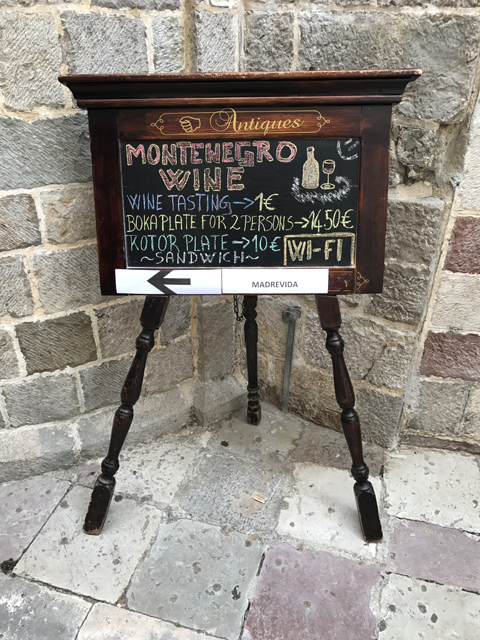 Antiques
MONTENEGRO
WINE
WINE TASTING → 1€
BOKA PLATE FOR 2 PERSONS → 14.50€
KOTOR PLATE → 10€
~ SANDWICH ~
WI-FI
MADREVIDA